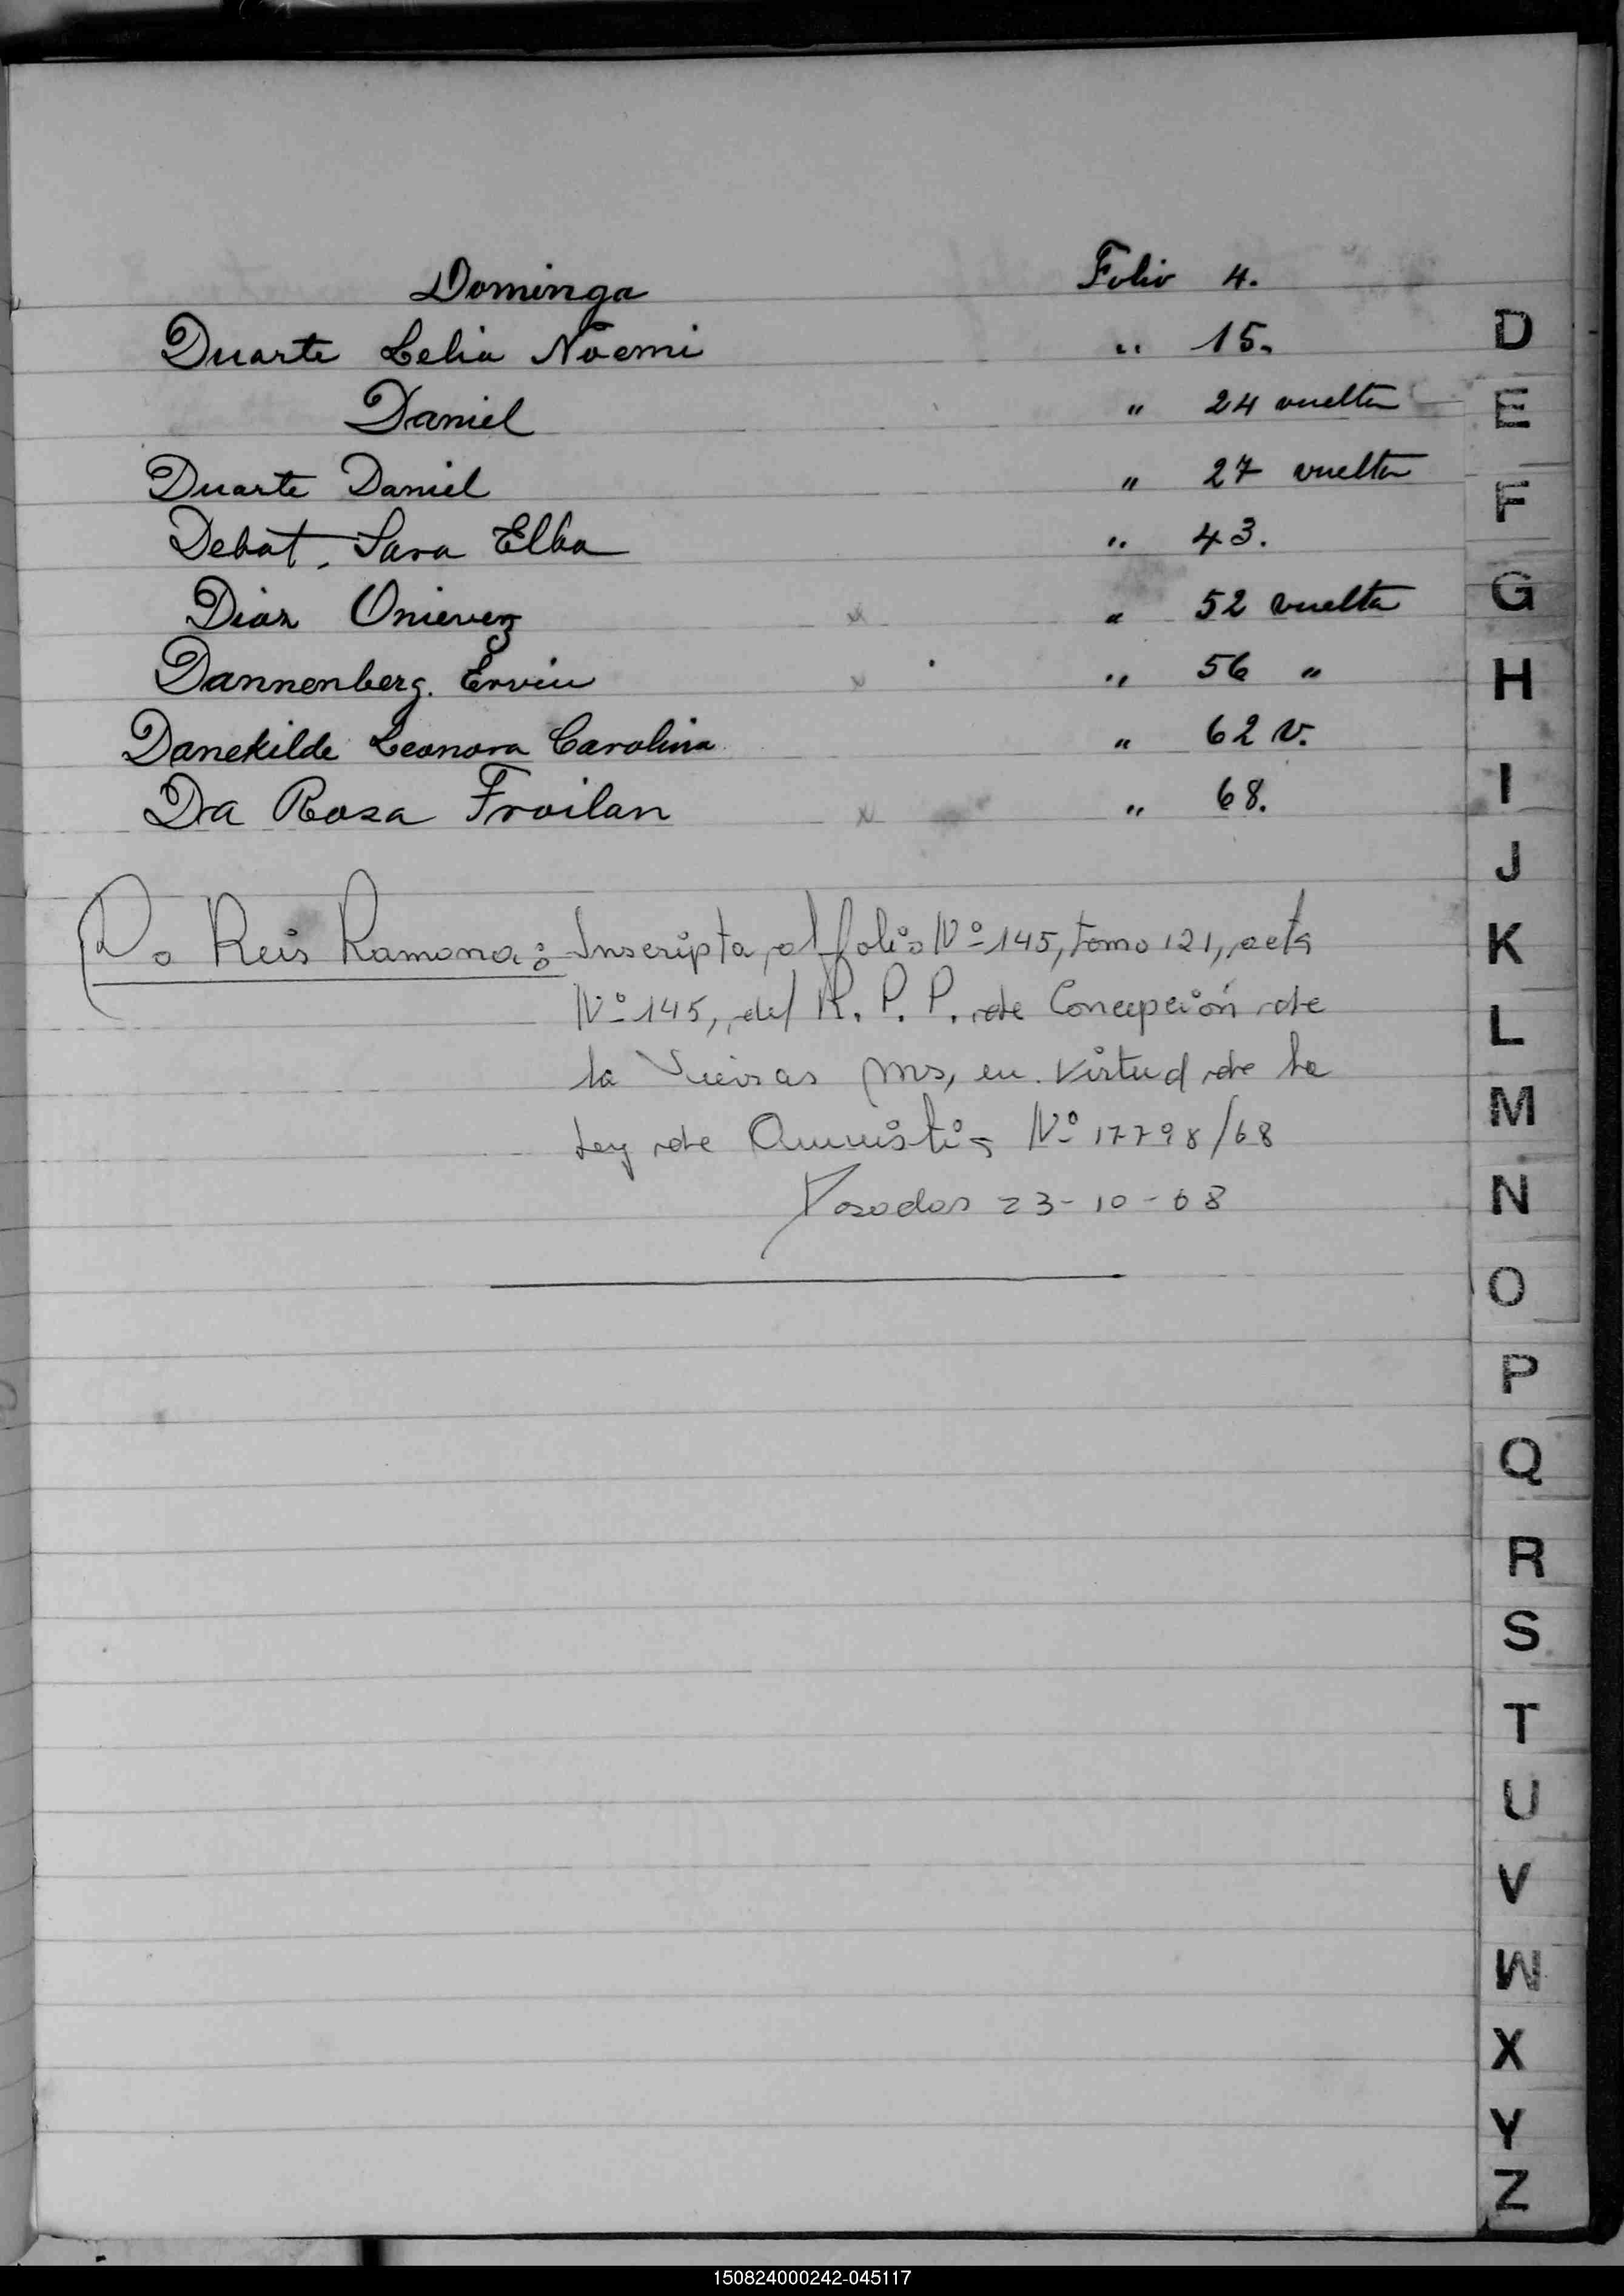 Dominga Folio 4.
Duarte Lelia Noemi " 15.
Daniel " 24 vuelta
Duarte Daniel " 27 vuelta
Debat, Sara Elba " 43.
Diaz Onieverz x " 52 vuelta
Dannenberg. Ervin x " 56 "
Danekilde Leonora Carolina " 62 v.
Da Rosa Froilan x " 68.
Do Reis Ramona: Inscripta, al folio Nº 145, tomo 121, acta
Nº 145, del R. P. P. de Concepción de
la Sierras Mns, en virtud de la
Ley de Amnistia Nº 17798/68
Posadas 23-10-68
D
E
F
G
H
I
J
K
L
M
N
O
P
Q
R
S
T
U
V
W
X
Y
Z
150824000242-045117